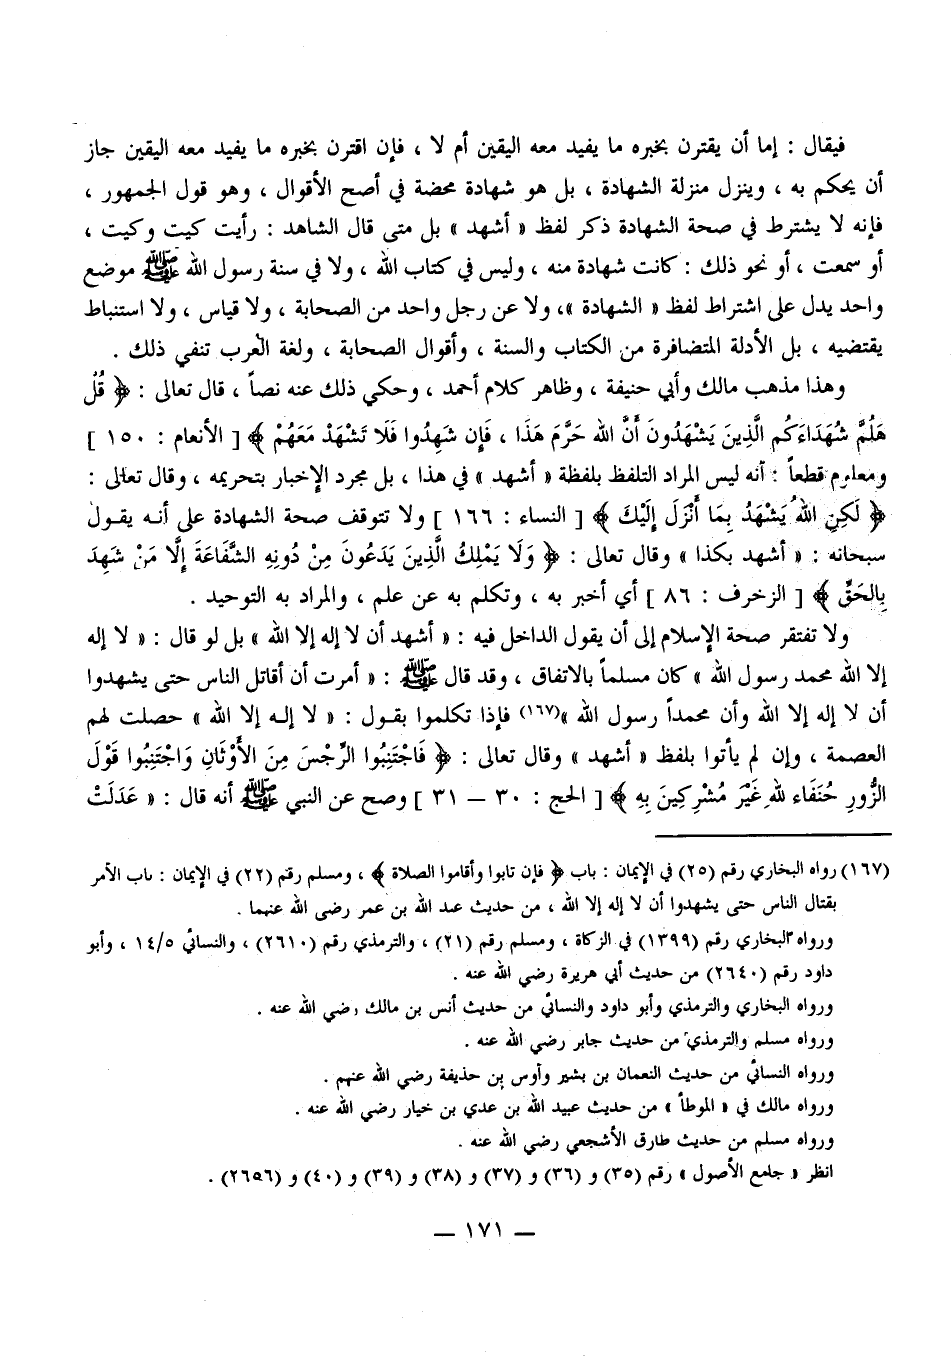 فيقال : إما أن يقترن بخبره ما يفيد معه اليقين أم لا ، فإن اقترن بخبره ما يفيد معه اليقين جاز
أن يحكم به ، وينزل منزلة الشهادة ، بل هو شهادة محضة في أصح الأقوال ، وهو قول الجمهور ،
فإنه لا يشترط في صحة الشهادة ذكر لفظ « أشهد » بل متى قال الشاهد : رأيت كيت وكيت ،
أو سمعت ، أو نحو ذلك : كانت شهادة منه ، وليس في كتاب الله ، ولا في سنة رسول الله ﷺ موضع
واحد يدل على اشتراط لفظ « الشهادة »، ولا عن رجل واحد من الصحابة ، ولا قياس ، ولا استنباط
يقتضيه ، بل الأدلة المتضافرة من الكتاب والسنة ، وأقوال الصحابة ، ولغة العرب تنفي ذلك .
وهذا مذهب مالك وأبي حنيفة ، وظاهر كلام أحمد ، وحكي ذلك عنه نصاً ، قال تعالى : ﴿ قُلْ
هَلُمَّ شُهَدَاءَكُم الَّذِينَ يَشْهَدُونَ أَنَّ الله حَرَّمَ هَذَا ، فَإِن شَهِدُوا فَلَا تَشْهَدْ مَعَهُمْ ﴾ [ الأنعام : ١٥٠ ]
ومعلوم قطعاً : أنه ليس المراد التلفظ بلفظة « أشهد » في هذا ، بل مجرد الإخبار بتحريمه ، وقال تعالى :
﴿ لَكِنِ اللهُ يَشْهَدُ بِمَا أَنْزَلَ إِلَيْكَ ﴾ [ النساء : ١٦٦ ] ولا تتوقف صحة الشهادة على أنه يقول
سبحانه : « أشهد بكذا » وقال تعالى : ﴿ وَلَا يَمْلِكُ الَّذِينَ يَدْعُونَ مِنْ دُونِهِ الشَّفَاعَةَ إِلَّا مَنْ شَهِدَ
بِالحَقِّ ﴾ [ الزخرف : ٨٦ ] أي أخبر به ، وتكلم به عن علم ، والمراد به التوحيد .
ولا تفتقر صحة الإسلام إلى أن يقول الداخل فيه : « أشهد أن لا إله إلا الله » بل لو قال : « لا إله
إلا الله محمد رسول الله » كان مسلماً بالاتفاق ، وقد قال ﷺ : « أمرت أن أقاتل الناس حتى يشهدوا
أن لا إله إلا الله وأن محمداً رسول الله »(١٦٧) فإذا تكلموا بقول : « لا إله إلا الله » حصلت لهم
العصمة ، وإن لم يأتوا بلفظ « أشهد » وقال تعالى : ﴿ فَاجْتَنِبُوا الرِّجْسَ مِنَ الأَوْثَانِ وَاجْتَنِبُوا قَوْلَ
الزُّورِ حُنَفَاء للهِ غَيْرَ مُشْرِكِينَ بِهِ ﴾ [ الحج : ٣٠ – ٣١ ] وصح عن النبي ﷺ أنه قال : « عَدَلَتْ
(١٦٧) رواه البخاري رقم (٢٥) في الإيمان : باب ﴿ فإن تابوا وأقاموا الصلاة ﴾ ، ومسلم رقم (٢٢) في الإيمان : باب الأمر
بقتال الناس حتى يشهدوا أن لا إله إلا الله ، من حديث عبد الله بن عمر رضي الله عنهما .
ورواه البخاري رقم (١٣٩٩) في الزكاة ، ومسلم رقم (٢١) ، والترمذي رقم (٢٦١٠) ، والنسائي ١٤/٥ ، وأبو
داود رقم (٢٦٤٠) من حديث أبي هريرة رضي الله عنه .
ورواه البخاري والترمذي وأبو داود والنسائي من حديث أنس بن مالك رضي الله عنه .
ورواه مسلم والترمذي من حديث جابر رضي الله عنه .
ورواه النسائي من حديث النعمان بن بشير وأوس بن حذيفة رضي الله عنهم .
ورواه مالك في « الموطأ » من حديث عبيد الله بن عدي بن خيار رضي الله عنه .
ورواه مسلم من حديث طارق الأشجعي رضي الله عنه .
انظر « جامع الأصول » رقم (٣٥) و (٣٦) و (٣٧) و (٣٨) و (٣٩) و (٤٠) و (٢٦٥٦) .
– ١٧١ –